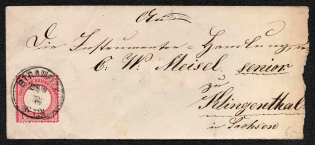 An
Die Instrumenten-Handlung
C. W. Meisel senior
zu
Klingenthal
in Sachsen